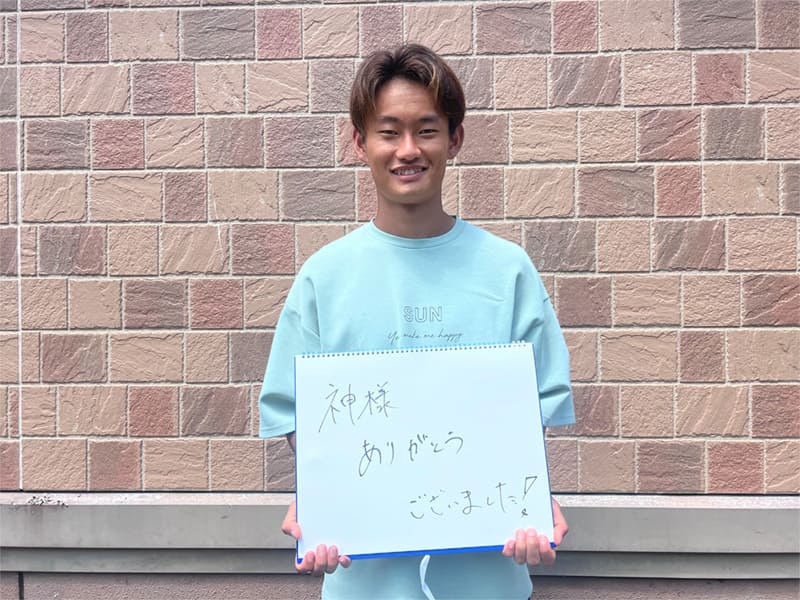 SUN
Yo make me happy
神様
ありがとう
ございました!